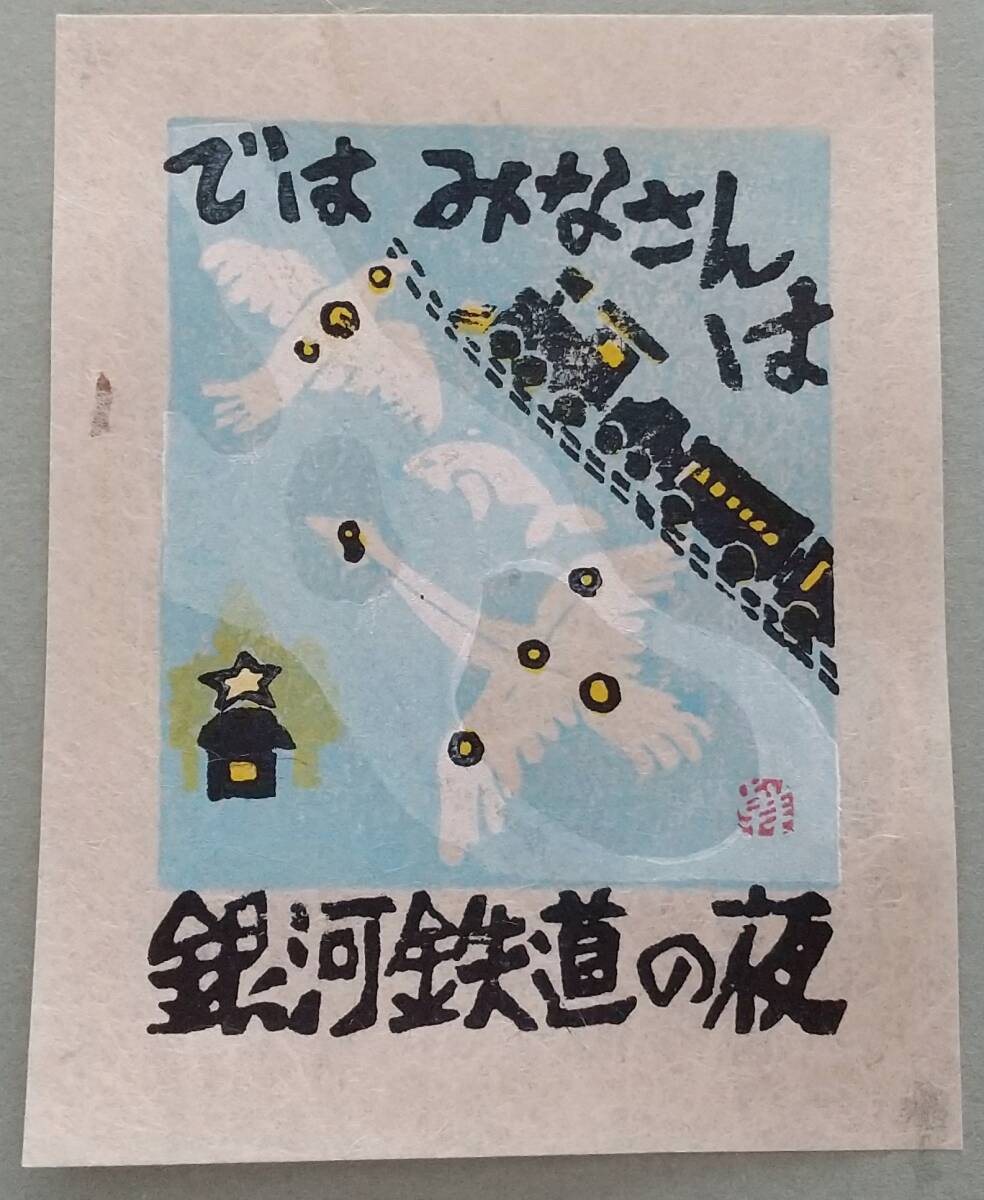 では みなさんは
銀河鉄道の夜